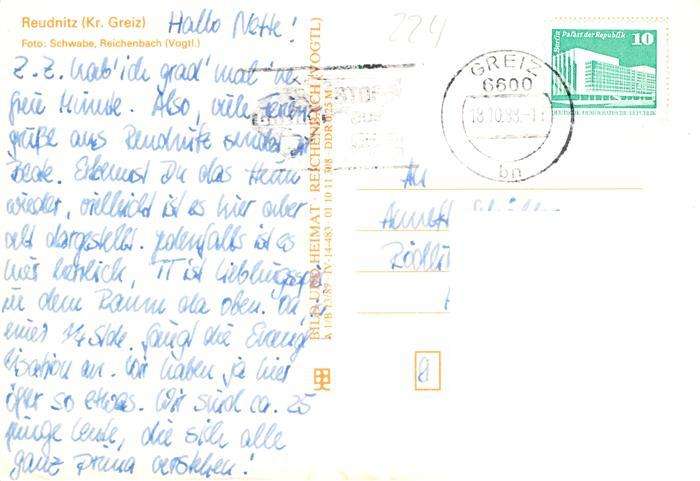 Reudnitz (Kr. Greiz)
Foto: Schwabe, Reichenbach (Vogtl.)
Hallo Nette!
Z. Z. hab' ich grad' mal 'ne
freie Minute. Also, viele
grüße aus Reudnitz sendet
Beate. Erkennst Du das Heim
wieder, vielleicht ist es hier aber
alt dargestellt. Jedenfalls ist es
hier herrlich, TT ist
in dem Raum da oben. In
einer 1/4 Std. fängt die Evange
lisation an. Wir haben ja hier
öfter so etwas. Wir sind ca. 25
junge Leute, die sich alle
ganz prima verstehen!
BILD UND HEIMAT · REICHENBACH (VOGTL)
A 1/B 13/89 IV-14-483 01 10 11 508 DDR 0,25 M
224
GREIZ
6600
18.10.
bn
Berlin Palast der Republik
10
DEUTSCHE DEMOKRATISCHE REPUBLIK
An
Annett